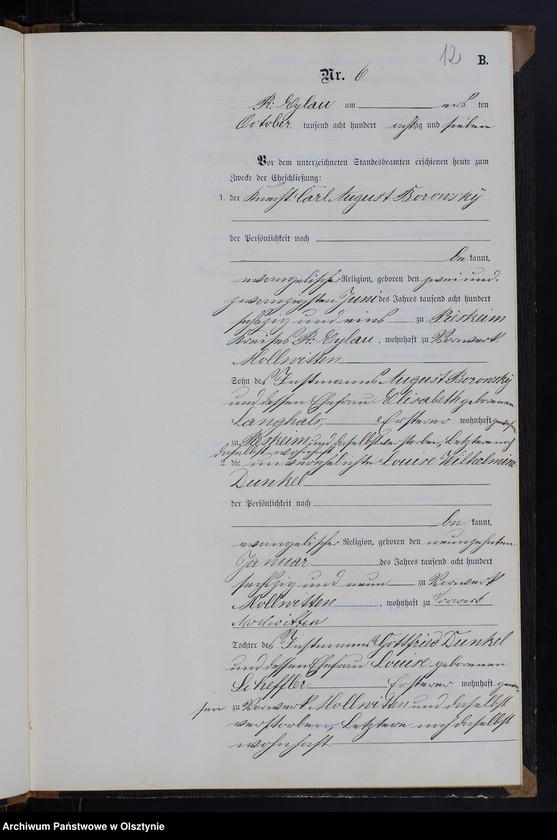 12 B.
Nr. 6
Pr. Eylau am ersten
October tausend acht hundert achtzig und sieben
Vor dem unterzeichneten Standesbeamten erschienen heute zum
Zwecke der Eheschließung:
1. der Knecht Carl August Boronsky
der Persönlichkeit nach
bekannt,
evangelischer Religion, geboren den zwei und
zwanzigsten Juni des Jahres tausend acht hundert
sechzig und eins zu
Kreises Pr. Eylau, wohnhaft zu Vorwerk
Mollwitten
Sohn des Instmanns August Boronsky
und dessen Ehefrau Elisabeth geborenen
Langhals, Ersterer wohnhaft gewesen
zu und daselbst verstorben, Letztere noch
daselbst wohnhaft
2. die unverehelichte Louise Wilhelmine
Dunkel
der Persönlichkeit nach
bekannt,
evangelischer Religion, geboren den neunzehnten
Januar des Jahres tausend acht hundert
sechzig und neun zu Vorwerk
Mollwitten, wohnhaft zu Vorwerk
Mollwitten
Tochter des Instmanns Gottfried Dunkel
und dessen Ehefrau Louise geborenen
Scheffler Ersterer wohnhaft gewe-
sen zu Vorwerk Mollwitten und daselbst
verstorben, Letztere noch daselbst
wohnhaft
Archiwum Państwowe w Olsztynie
Archiwum Państwowe w Olsztynie